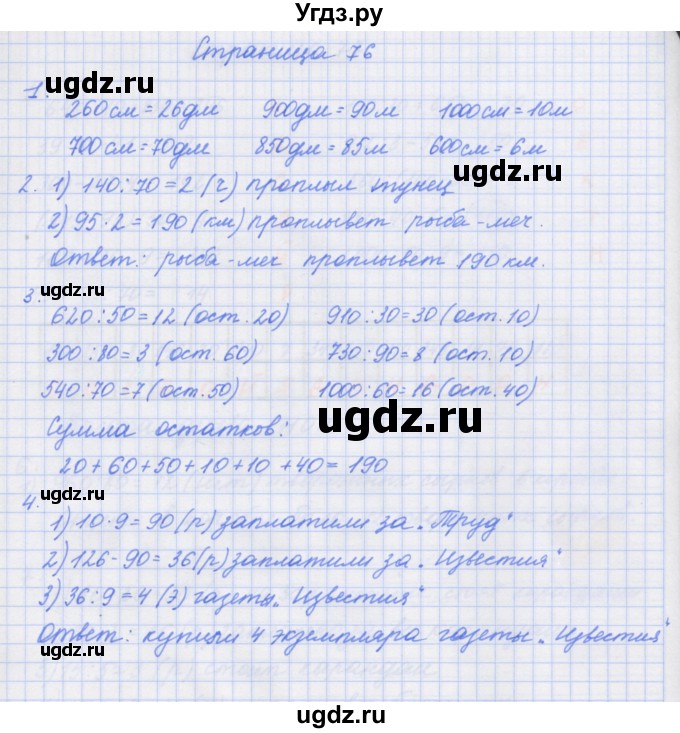 Угдз.ру
Страница 76
ugdz.ru ugdz.ru
1.
260см = 26дм 900дм = 90м 1000см = 10м
700см = 70дм 850дм = 85м 600см = 6м
ugdz.ru
2. 1) 140:70 = 2 (ч) проплыл тунец
2) 95·2 = 190 (км) проплывет рыба-меч.
ugdz.ru
Ответ: рыба-меч проплывет 190 км.
ugdz.ru
3.
620:50 = 12 (ост. 20) 910:30 = 30 (ост. 10)
ugdz.ru
300:80 = 3 (ост. 60) 730:90 = 8 (ост. 10)
ugdz.ru
540:70 = 7 (ост. 50) 1000:60 = 16 (ост. 40)
ugdz.ru
Сумма остатков:
20+60+50+10+10+40 = 190
ugdz.ru
4.
1) 10·9 = 90 (р) заплатили за „Труд“
ugdz.ru
2) 126-90 = 36 (р) заплатили за „Известия“
3) 36:9 = 4 (э) газеты „Известия“
ugdz.ru
Ответ: купили 4 экземпляра газеты „Известия“
ugdz.ru
ugdz.ru
ugdz.ru